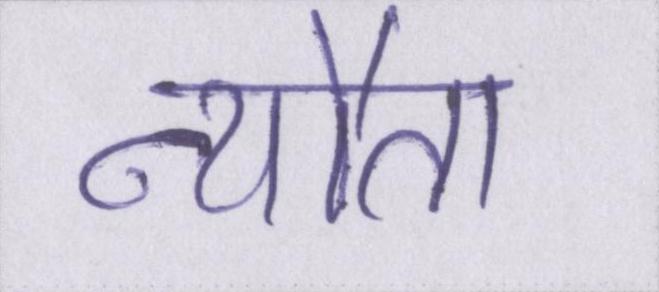 न्यौता